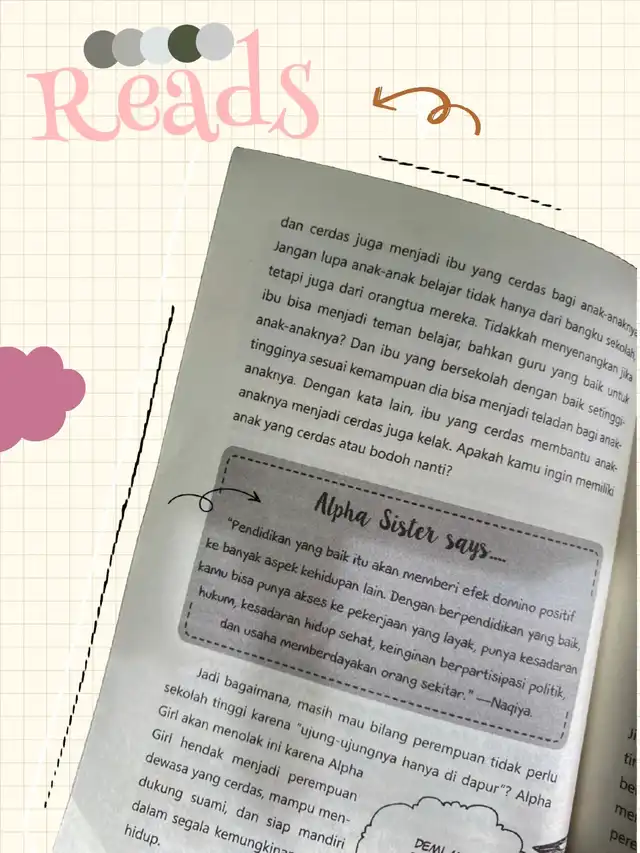 Reads
dan cerdas juga menjadi ibu yang cerdas bagi anak-anaknya
Jangan lupa anak-anak belajar tidak hanya dari bangku sekolah,
tetapi juga dari orangtua mereka. Tidakkah menyenangkan jika
ibu bisa menjadi teman belajar, bahkan guru yang baik untuk
anak-anaknya? Dan ibu yang bersekolah dengan baik setinggi-
tingginya sesuai kemampuan dia bisa menjadi teladan bagi anak-
anaknya. Dengan kata lain, ibu yang cerdas membantu anak-
anaknya menjadi cerdas juga kelak. Apakah kamu ingin memiliki
anak yang cerdas atau bodoh nanti?
Alpha Sister says....
"Pendidikan yang baik itu akan memberi efek domino positif
ke banyak aspek kehidupan lain. Dengan berpendidikan yang baik,
kamu bisa punya akses ke pekerjaan yang layak, punya kesadaran
hukum, kesadaran hidup sehat, keinginan berpartisipasi politik,
dan usaha memberdayakan orang sekitar." —Naqiya.
Jadi bagaimana, masih mau bilang perempuan tidak perlu
sekolah tinggi karena "ujung-ujungnya hanya di dapur"? Alpha
Girl akan menolak ini karena Alpha
Girl hendak menjadi perempuan
dewasa yang cerdas, mampu men-
dukung suami, dan siap mandiri
dalam segala kemungkinan
hidup.